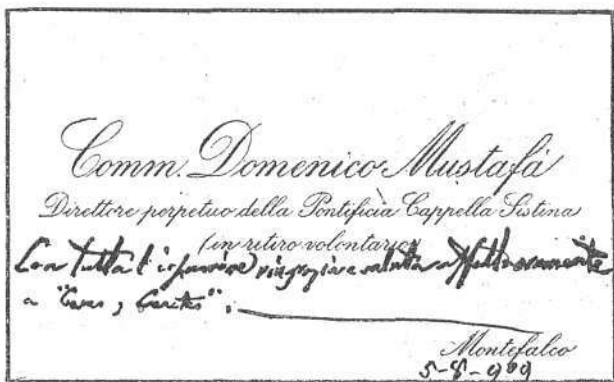 Comm. Domenico Mustafá
Direttore perpetuo della Pontificia Cappella Sistina
(in ritiro volontario)
Con tutta ringrazia e saluta affettuosamente
a
Montefalco
5-8-909